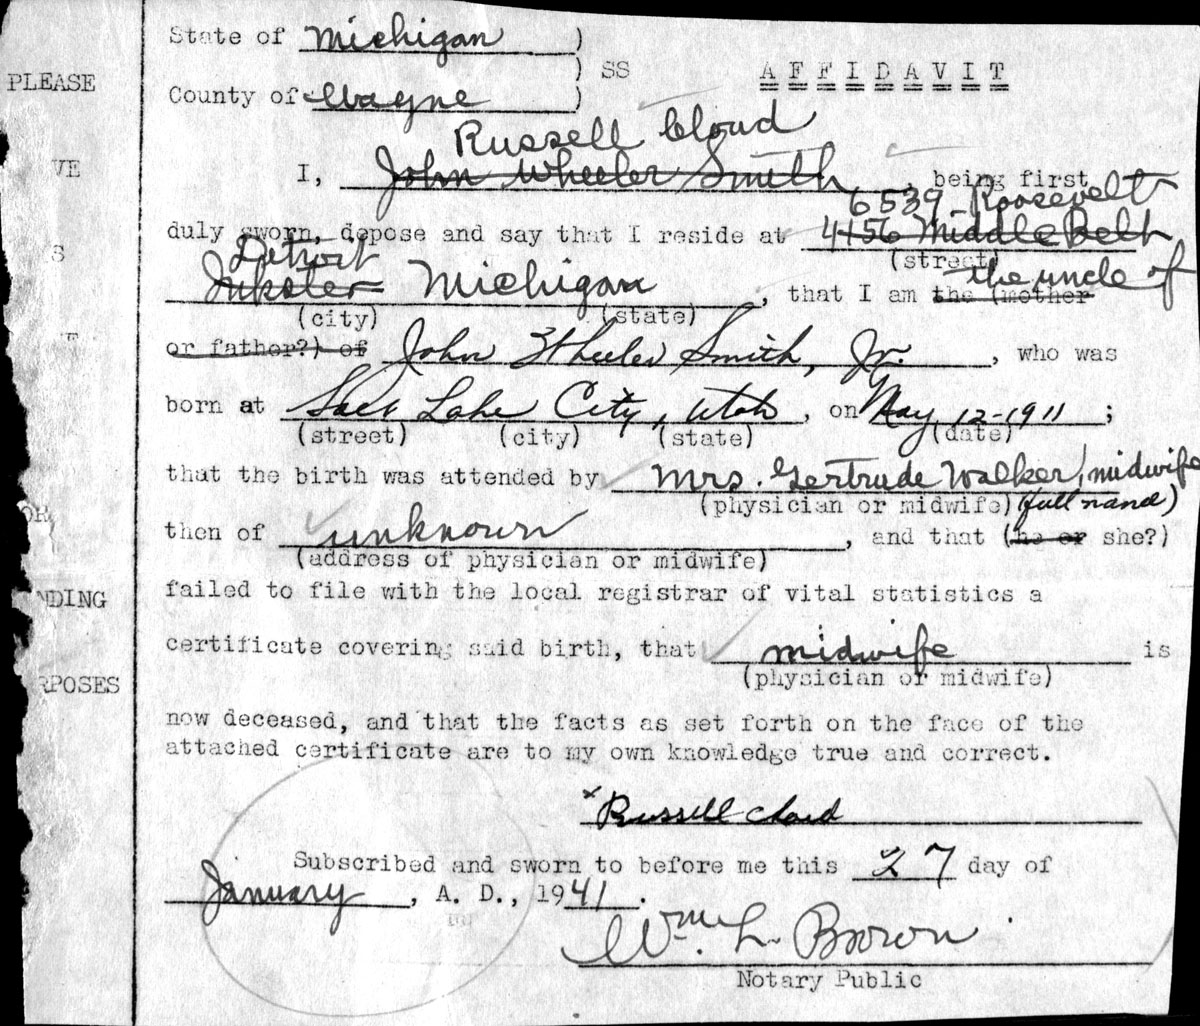 State of Michigan )
PLEASE ) SS AFFIDAVIT
County of Wayne )
Russell Cloud
VE I, John Wheeler Smith, being first
6539 Roosevelt
duly sworn, depose and say that I reside at 4156 Middle Belt
S Detroit (street) the uncle of
Inkster Michigan, that I am the (mother
(city) (state)
or father?) of John Wheeler Smith, Jr., who was
born at Salt Lake City, Utah, on May 12-1911;
(street) (city) (state) (date)
that the birth was attended by Mrs. Gertrude Walker, midwife
(physician or midwife) (full name)
OR then of unknown, and that (he or she?)
(address of physician or midwife)
NDING failed to file with the local registrar of vital statistics a
certificate covering said birth, that midwife is
RPOSES (physician or midwife)
now deceased, and that the facts as set forth on the face of the
attached certificate are to my own knowledge true and correct.
x Russell Cloud
Subscribed and sworn to before me this 27 day of
January, A. D., 1941.
Wm. L. Brown
Notary Public